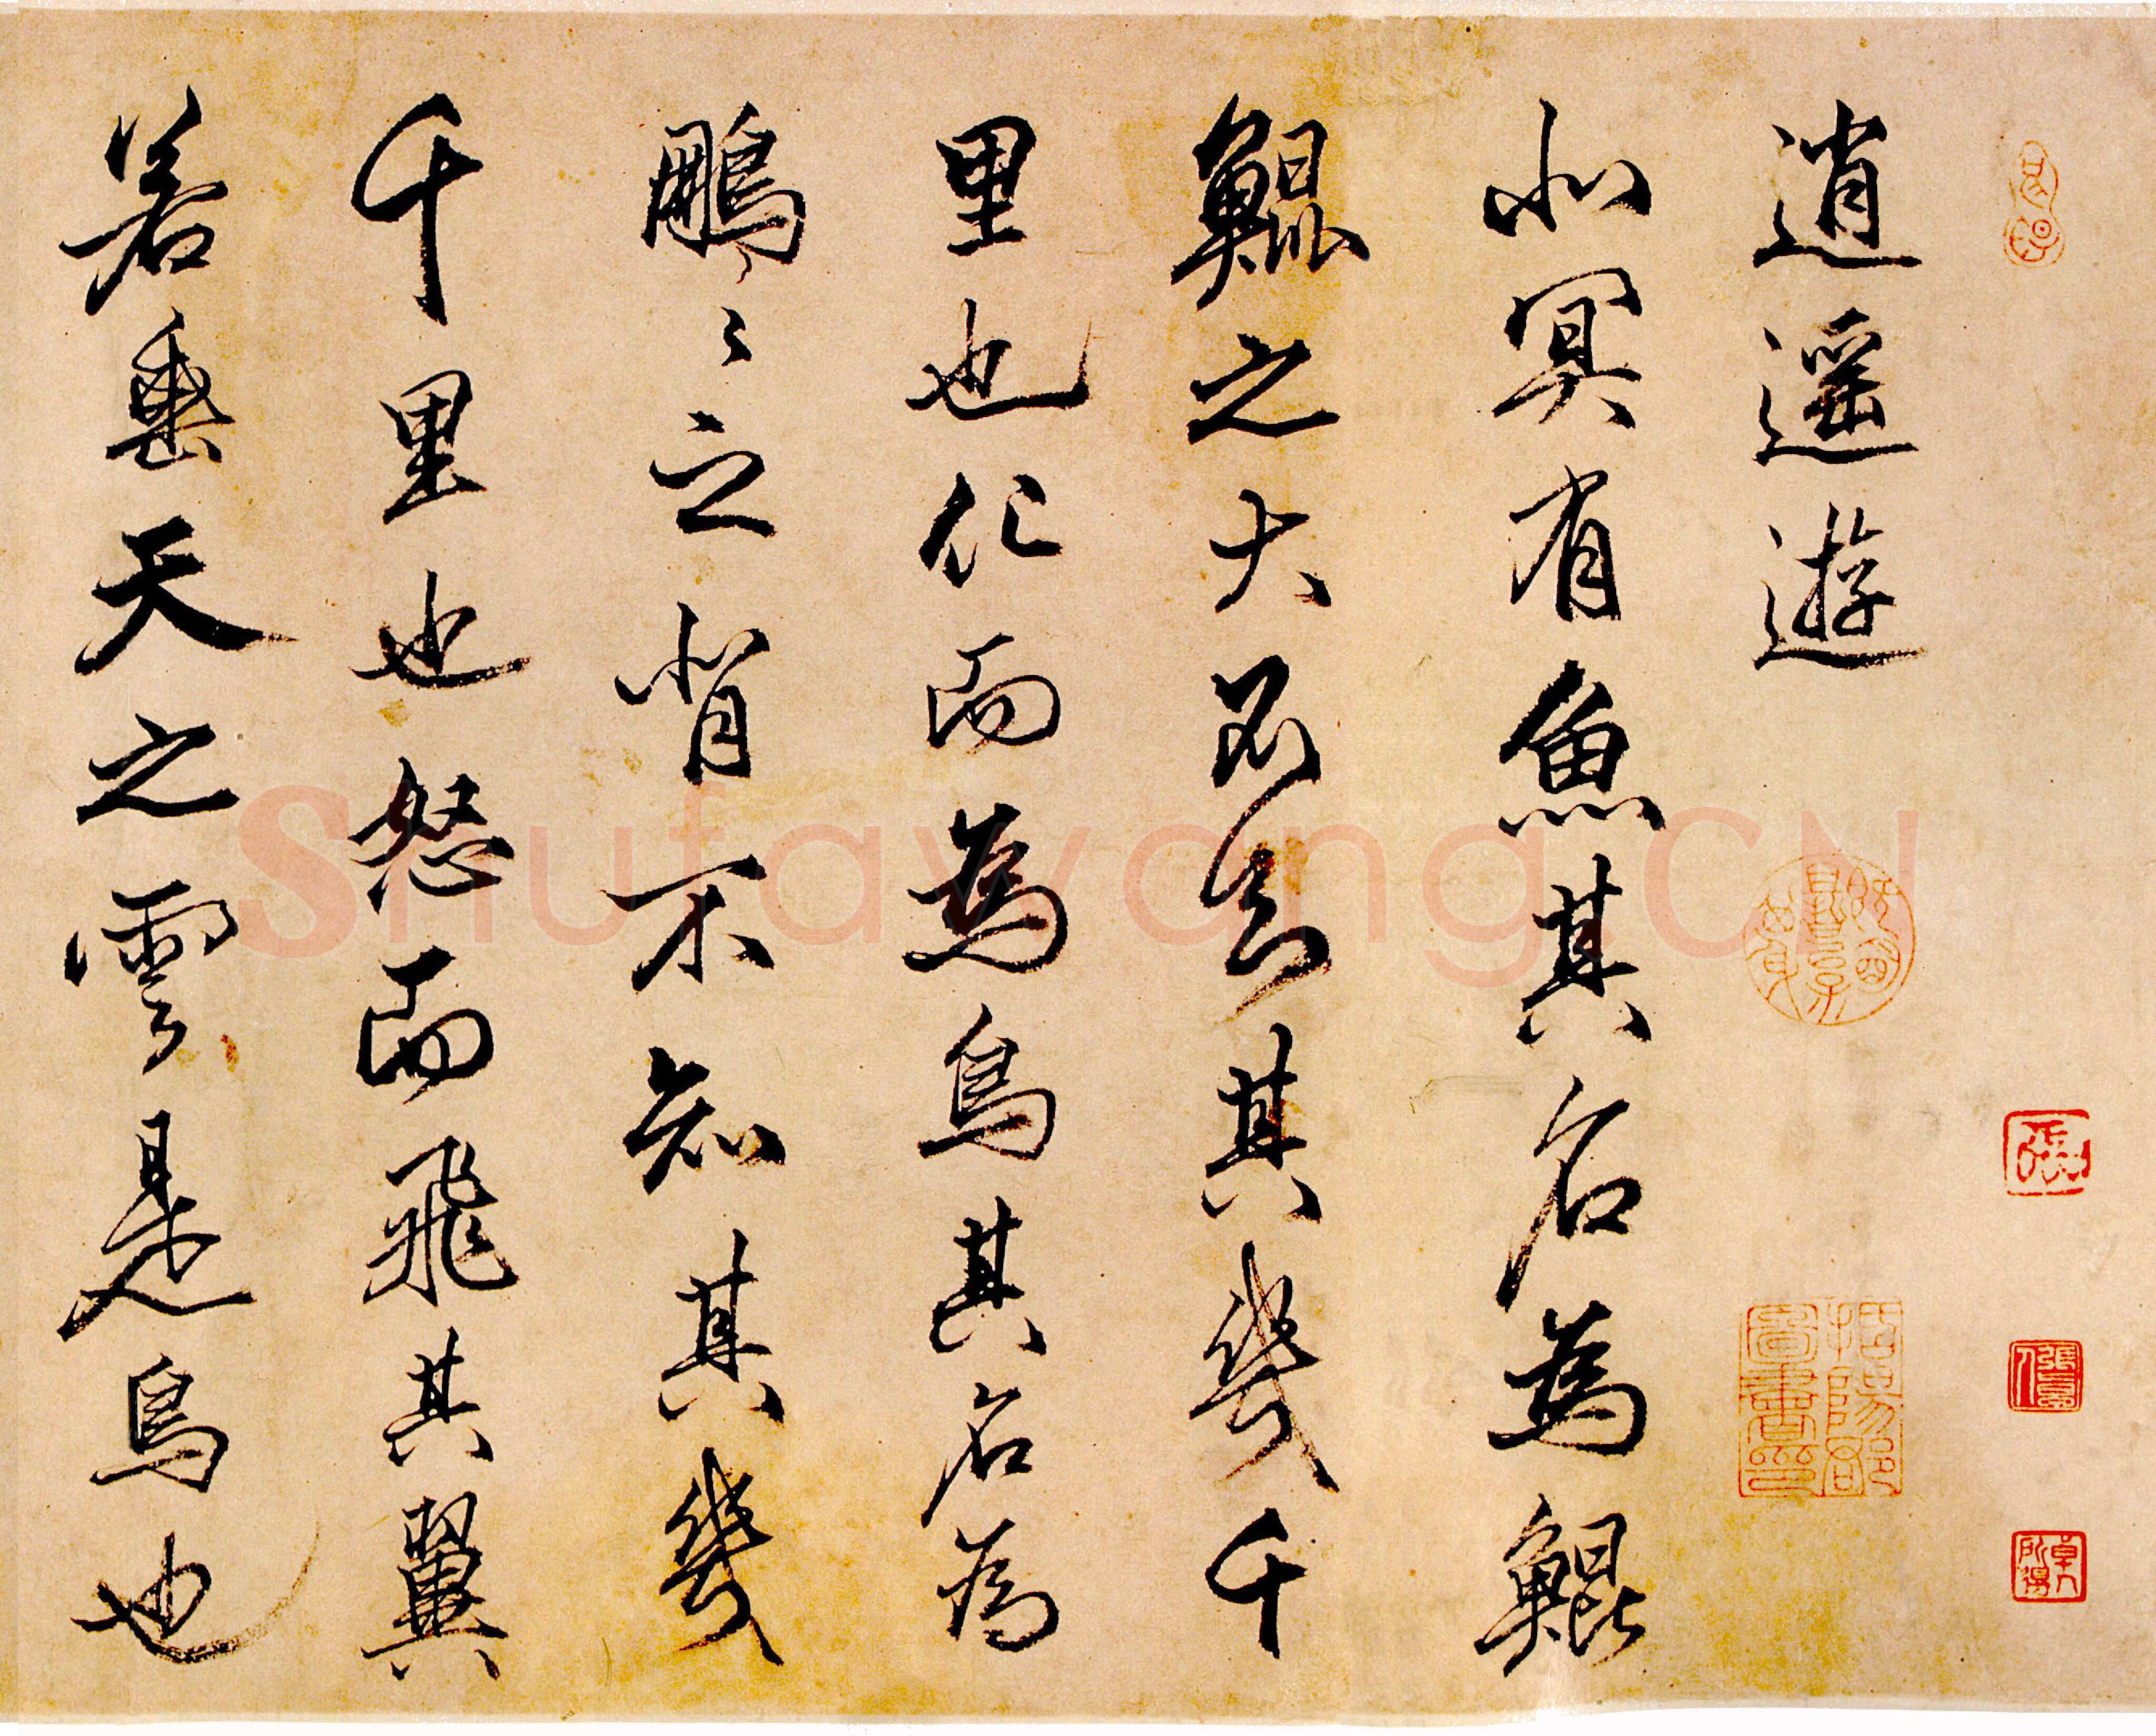 逍遥遊
北冥有魚其名為鯤
鯤之大不知其幾千
里也化而為鳥其名為
鵬〻之背不知其幾
千里也怒而飛其翼
若垂天之雲是鳥也
Shufawang.CN